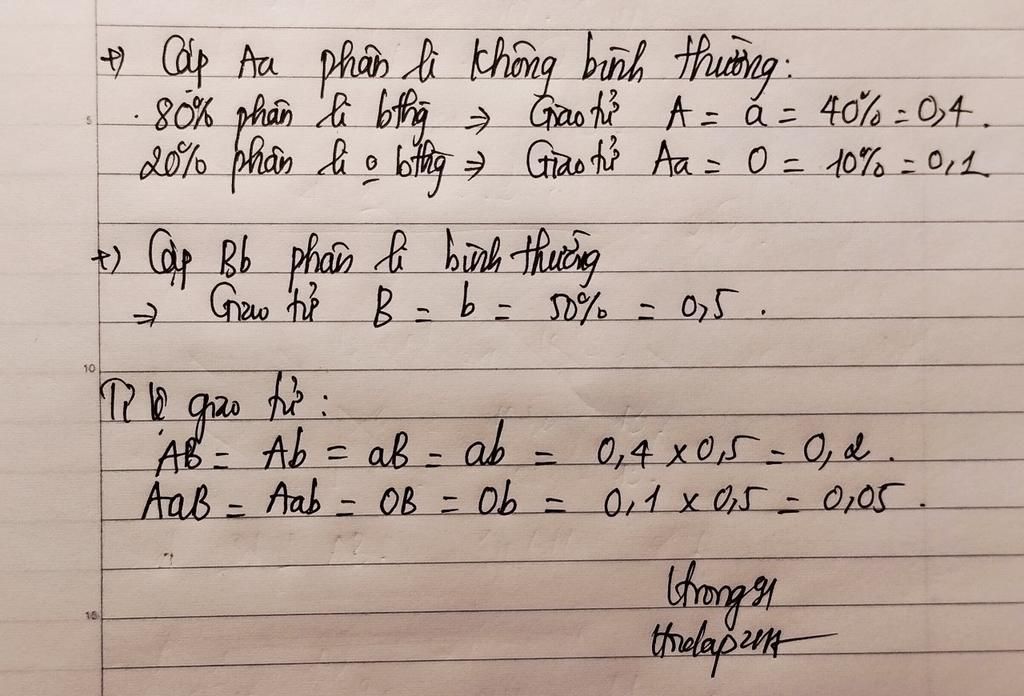 +) Cặp Aa phân li không bình thường:
5
. 80% phân li bthg => Giao tử A = a = 40% = 0,4.
20% phân li o bthg => Giao tử Aa = O = 10% = 0,1
+) Cặp Bb phân li bình thường
=> Giao tử B = b = 50% = 0,5.
10
Tỉ lệ giao tử:
AB = Ab = aB = ab = 0,4 x 0,5 = 0,2.
AaB = Aab = OB = Ob = 0,1 x 0,5 = 0,05.
15